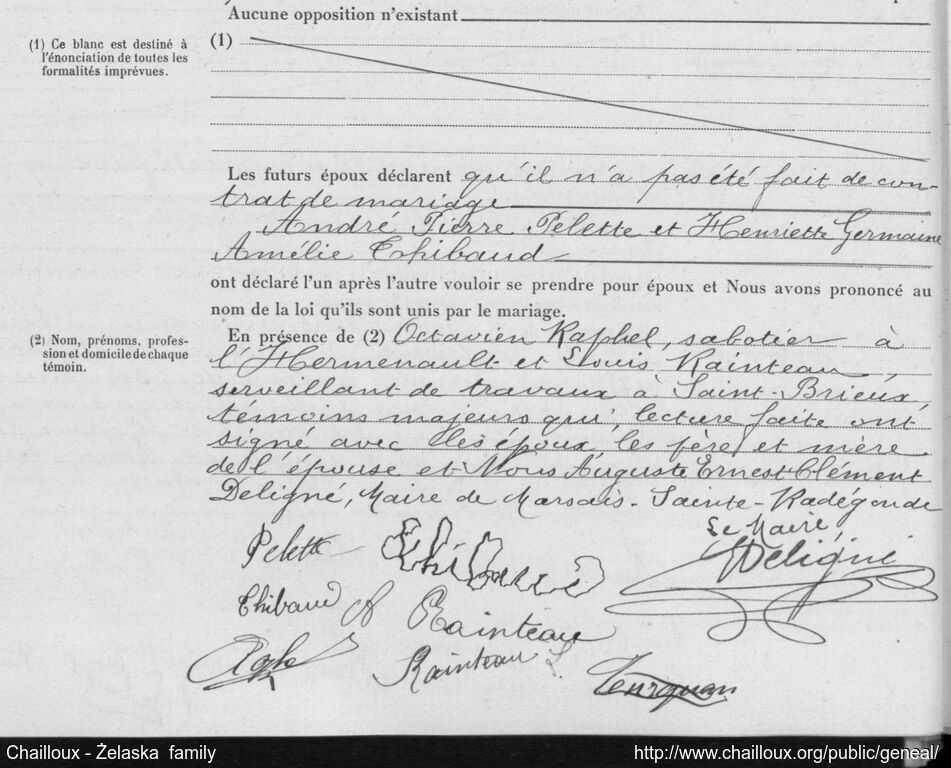 Aucune opposition n'existant
(1) Ce blanc est destiné à
l'énonciation de toutes les
formalités imprévues.
(1)
Les futurs époux déclarent qu'il n'a pas été fait de con-
trat de mariage
André Pierre Pelette et Henriette Germaine
Amélie Thibaud
ont déclaré l'un après l'autre vouloir se prendre pour époux et Nous avons prononcé au
nom de la loi qu'ils sont unis par le mariage.
(2) Nom, prénoms, profes-
sion et domicile de chaque
témoin.
En présence de (2) Octavien Raphel, sabotier à
l'Hermenault et Louis Rainteau,
serveillant de travaux à Saint-Brieux,
témoins majeurs qui, lecture faite ont
signé avec les époux, les père et mère
de l'épouse et Nous Auguste Ernest Clément
Deligné, Maire de Marsais-Sainte-Radégonde
Le Maire
Pelette
Deligné
Thibaud
A Rainteau
Rainteau L.
Chailloux - Želaska family
http://www.chailloux.org/public/geneal/